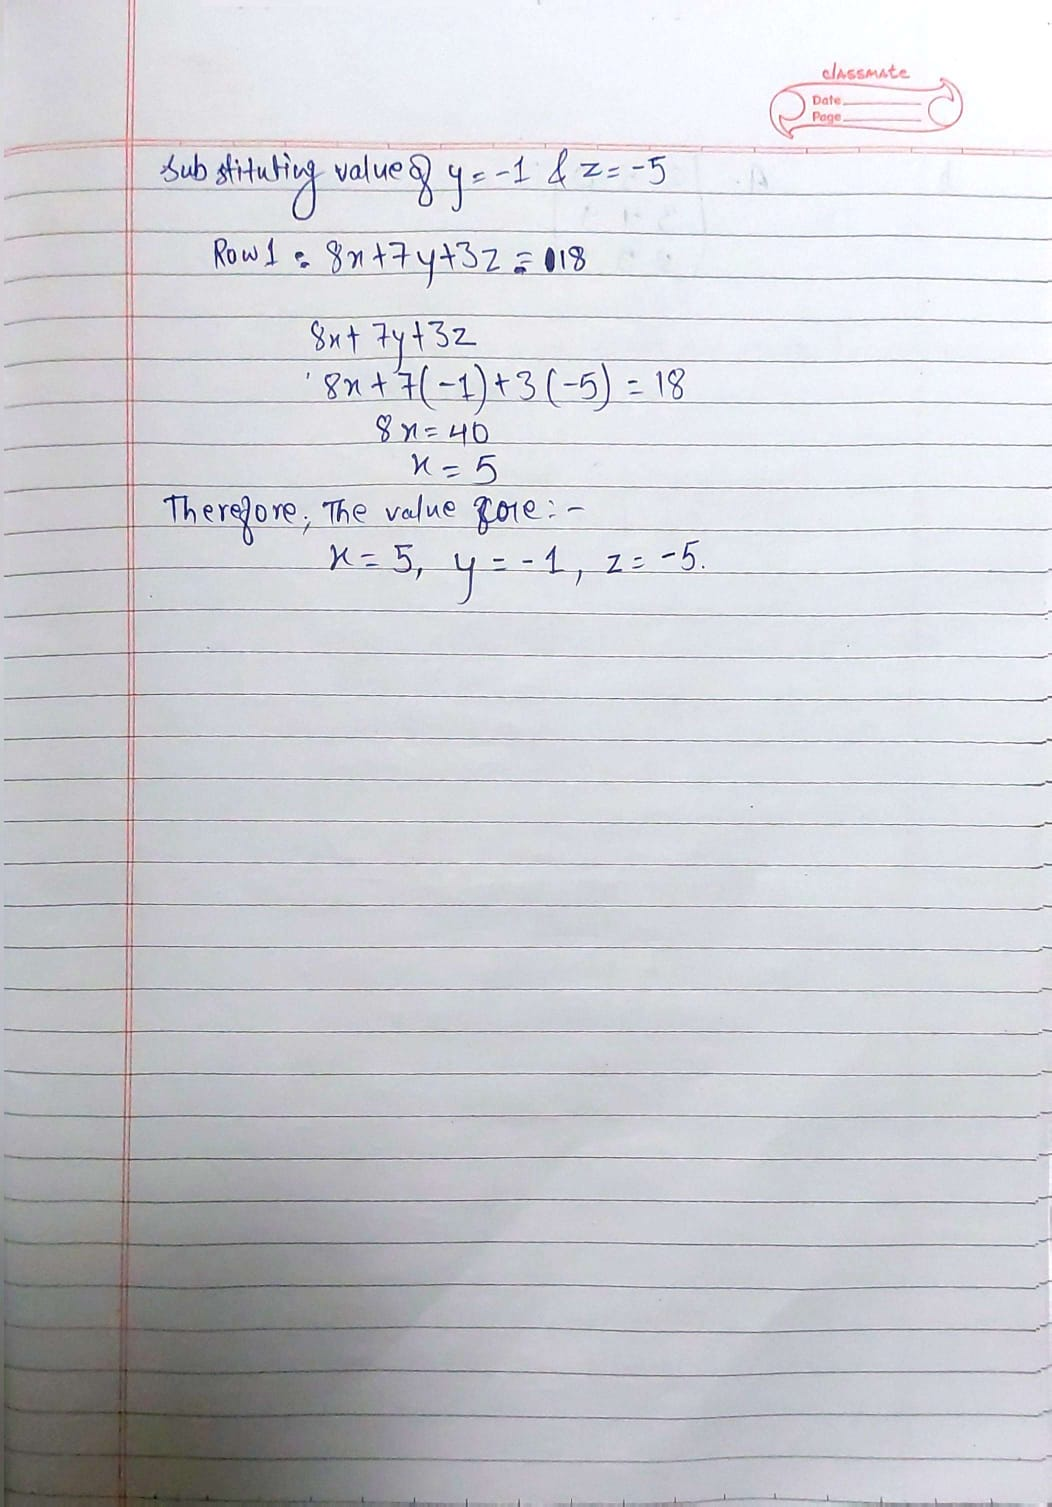 classmate
Date
Page
Substituting value of y = -1 & z = -5
Row 1 = 8x + 7y + 3z = 18
8x + 7y + 3z
8x + 7(-1) + 3(-5) = 18
8x = 40
x = 5
Therefore, The value are :-
x = 5, y = -1, z = -5.